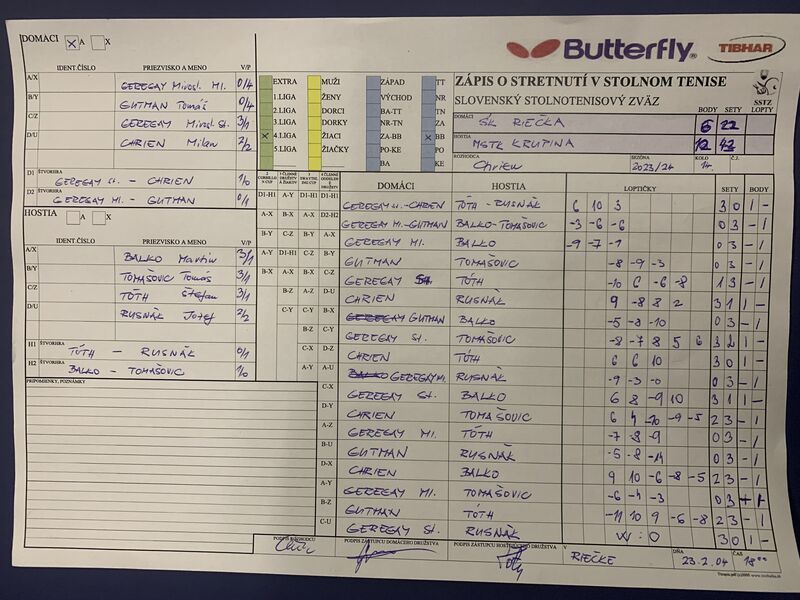 DOMÁCI X A X
IDENT.ČÍSLO PRIEZVISKO A MENO V/P
A/X GEREGAY Mirosl. Ml. 0/4
B/Y GUTMAN Tomáš 0/4
C/Z GEREGAY Mirosl. St. 3/1
D/U CHRIEN Milan 2/2
D1 ŠTVORHRA GEREGAY st. - CHRIEN 1/0
ŠTVORHRA GEREGAY Ml. - GUTMAN 0/1
HOSTIA A X
IDENT.ČÍSLO PRIEZVISKO A MENO V/P
A/X BALKO Martin 3/1
B/Y TOMAŠOVIC Tomáš 3/1
C/Z TÓTH Štefan 3/1
D/U RUSNÁK Jozef 2/2
H1 ŠTVORHRA TÓTH - RUSNÁK 0/1
H2 ŠTVORHRA BALKO - TOMAŠOVIC 1/0
PRIPOMIENKY, POZNÁMKY
EXTRA MUŽI ZÁPAD TT
1.LIGA ŽENY VÝCHOD NR
2.LIGA DORCI BA-TT TN
3.LIGA DORKY NR-TN ZA
X 4.LIGA ŽIACI ZA-BB X BB
5.LIGA ŽIAČKY PO-KE PO
BA KE
Butterfly TIBHAR
ZÁPIS O STRETNUTÍ V STOLNOM TENISE
SLOVENSKÝ STOLNOTENISOVÝ ZVÄZ
SSTZ
BODY SETY LOPTY
DOMÁCI SK RIEČKA 6 22
HOSTIA MSTK KRUPINA 12 43
ROZHODCA Chrien SEZÓNA 2023/24 KOLO Č.Z.
DOMÁCI HOSTIA LOPTIČKY SETY BODY
GEREGAY st.-CHRIEN TÓTH - RUSNÁK 6 10 3 3 0 1 -
GEREGAY Ml.-GUTMAN BALKO-TOMAŠOVIC -3 -6 -6 0 3 - 1
GEREGAY Ml. BALKO -9 -7 -1 0 3 - 1
GUTMAN TOMAŠOVIC -8 -9 -3 0 3 - 1
GEREGAY St. TÓTH -10 6 -6 -8 1 3 - 1
CHRIEN RUSNÁK 9 -8 8 2 3 1 1 -
GUTMAN BALKO -5 -8 -10 0 3 - 1
GEREGAY St. TOMAŠOVIC -8 -7 8 5 6 3 2 1 -
CHRIEN TÓTH 6 6 10 3 0 1 -
GEREGAY Ml. RUSNÁK -9 -3 -0 0 3 - 1
GEREGAY St. BALKO 6 8 -9 10 3 1 1 -
CHRIEN TOMAŠOVIC 6 4 -10 -9 -5 2 3 - 1
GEREGAY Ml. TÓTH -7 -8 -9 0 3 - 1
GUTMAN RUSNÁK -5 -8 -14 0 3 - 1
CHRIEN BALKO 9 10 -6 -8 -5 2 3 - 1
GEREGAY Ml. TOMAŠOVIC -6 -4 -3 0 3 - 1
GUTMAN TÓTH -11 10 9 -6 -8 2 3 - 1
GEREGAY St. RUSNÁK W : O 3 0 1 -
PODPIS ROZHODCU PODPIS ZÁSTUPCU DOMÁCEHO DRUŽSTVA PODPIS ZÁSTUPCU HOSŤUJÚCEHO DRUŽSTVA V RIEČKE DŇA 23.2.04 ČAS 18°°